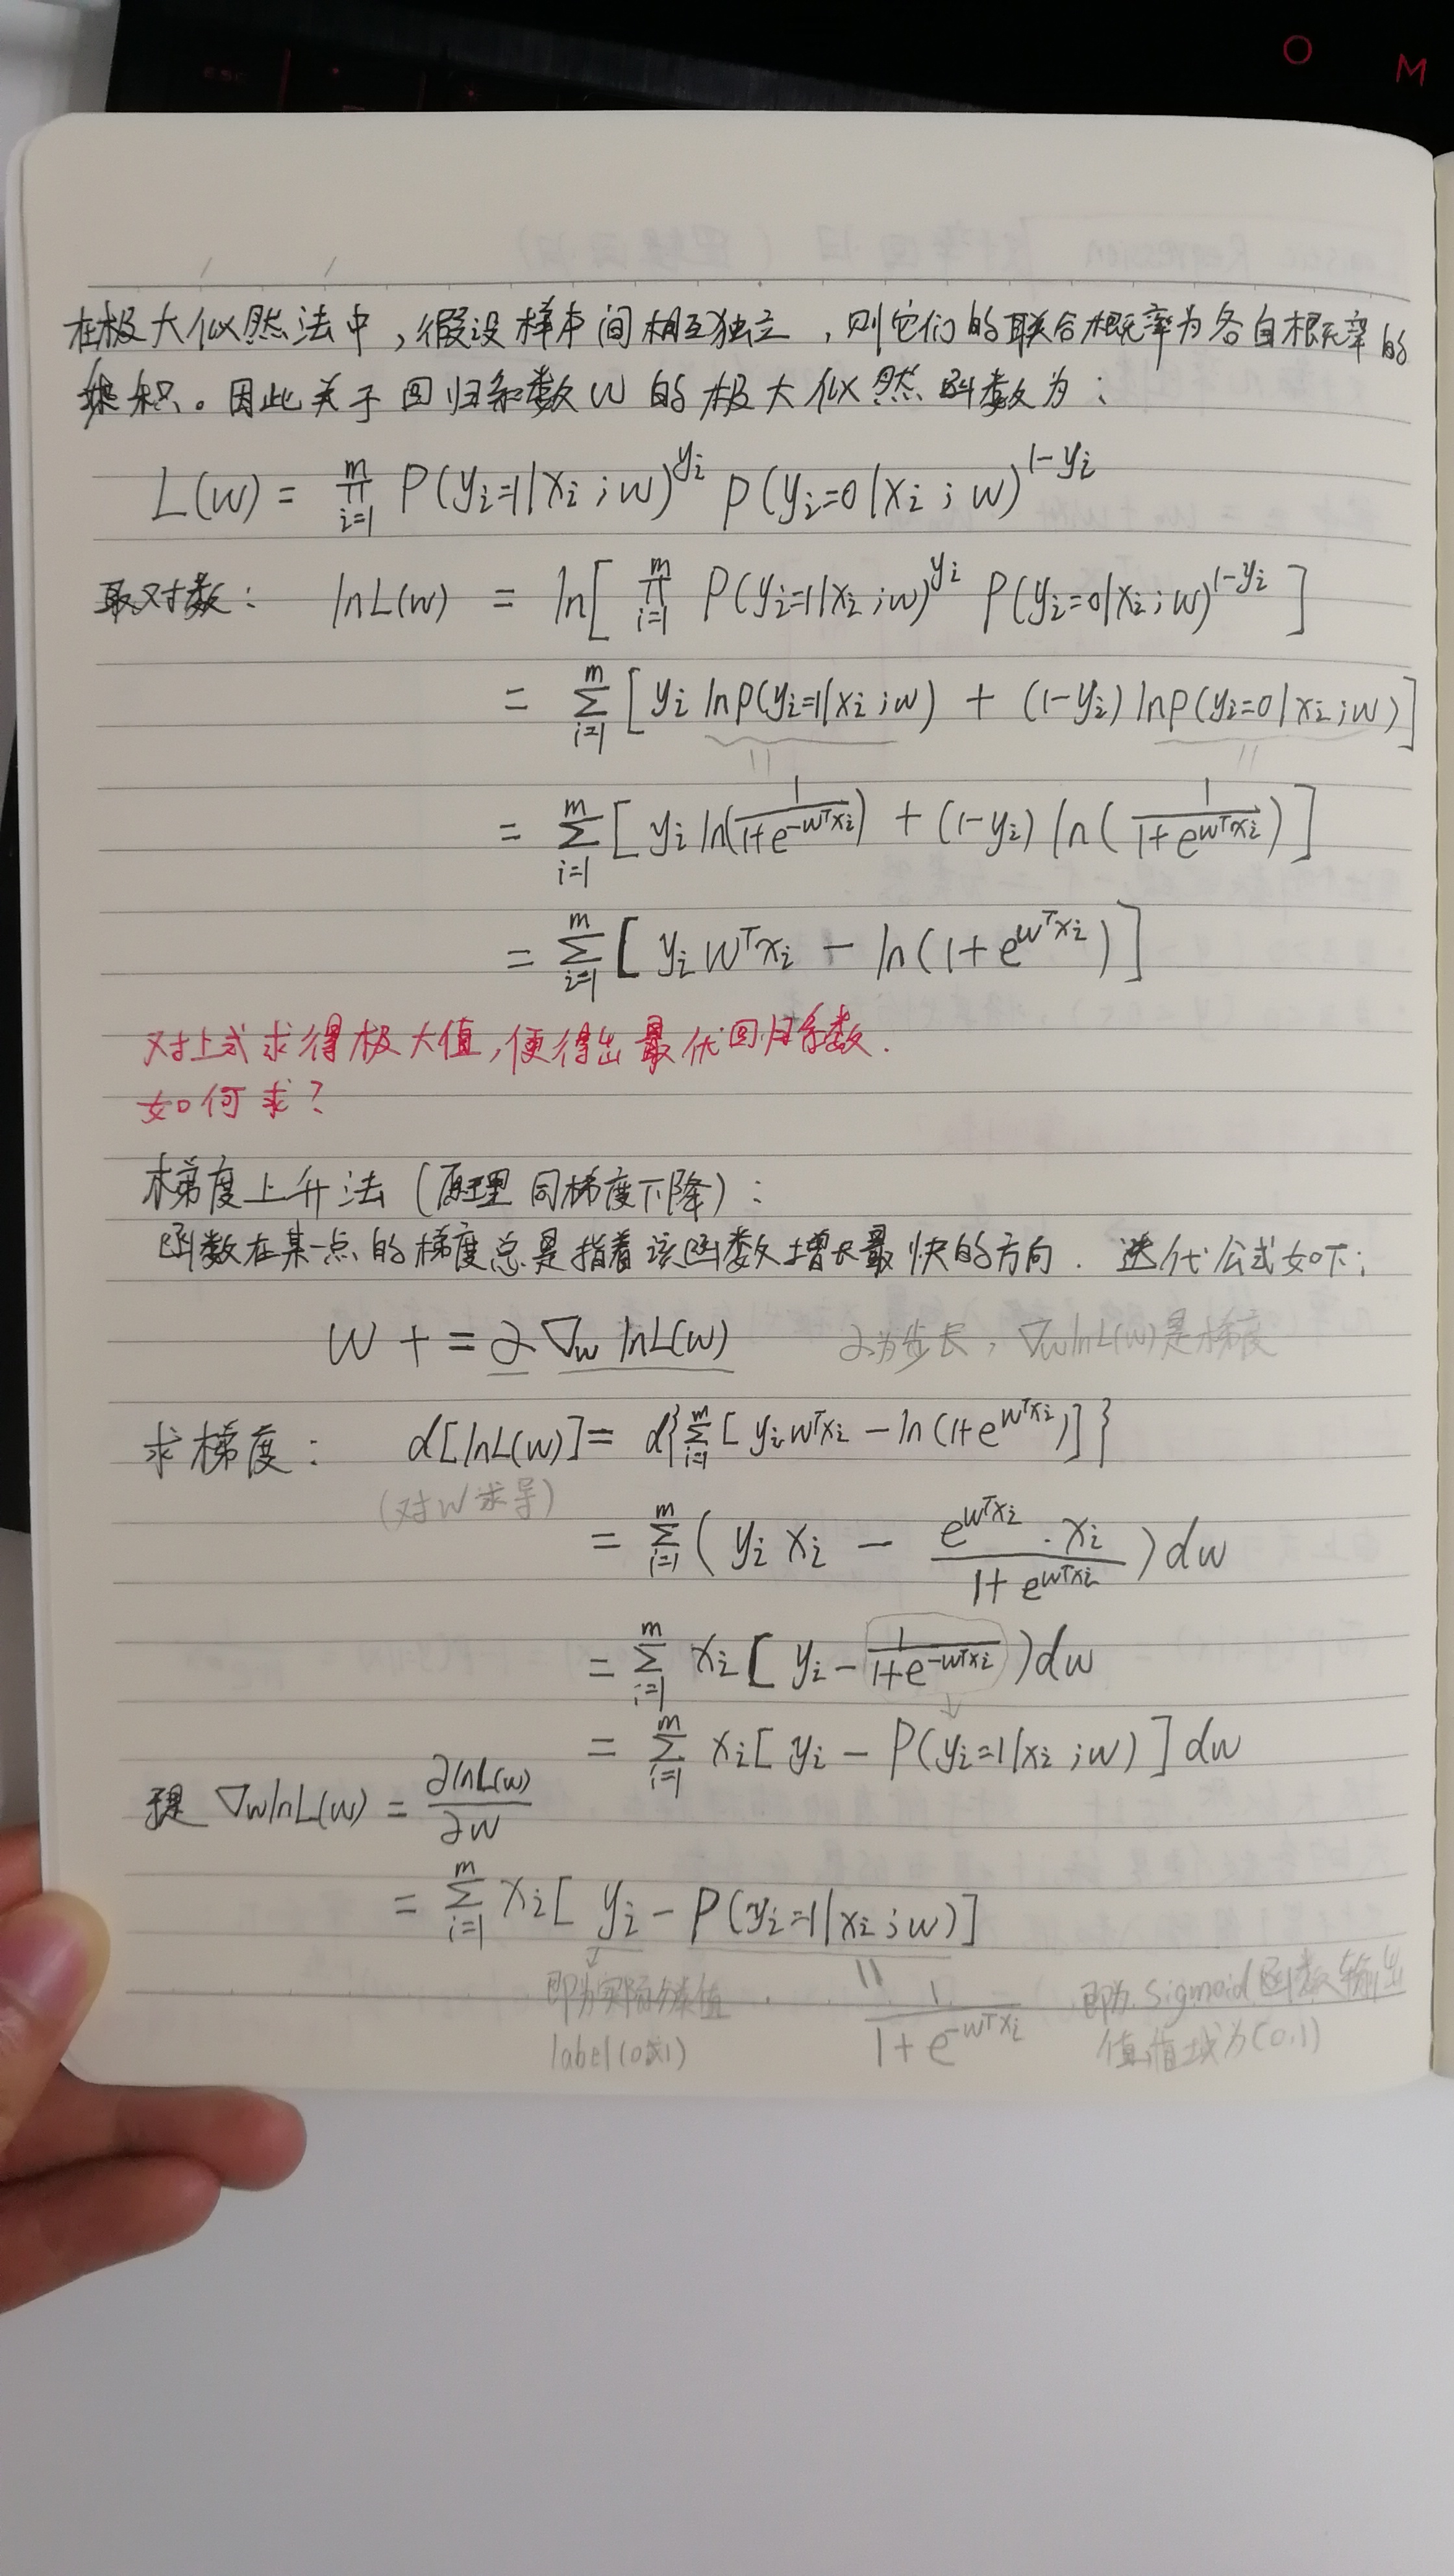 O M
在极大似然法中,假设样本间相互独立,则它们的联合概率为各自概率的
乘积。因此关于回归系数W的极大似然函数为:
L(w) = ∏_{i=1}^{m} P(y_i=1|x_i;w)^{y_i} P(y_i=0|x_i;w)^{1-y_i}
取对数: lnL(w) = ln[ ∏_{i=1}^{m} P(y_i=1|x_i;w)^{y_i} P(y_i=0|x_i;w)^{1-y_i} ]
= ∑_{i=1}^{m} [ y_i lnP(y_i=1|x_i;w) + (1-y_i) lnP(y_i=0|x_i;w) ]
= ∑_{i=1}^{m} [ y_i ln(1/(1+e^{-w^T x_i})) + (1-y_i) ln(1/(1+e^{w^T x_i})) ]
= ∑_{i=1}^{m} [ y_i w^T x_i - ln(1+e^{w^T x_i}) ]
对上式求得极大值,便得出最优回归系数.
如何求?
梯度上升法(原理同梯度下降):
函数在某一点的梯度总是指着该函数增长最快的方向. 迭代公式如下:
W += ∂ ∇_w lnL(w) ∂为步长,∇_w lnL(w)是梯度
求梯度: d[lnL(w)] = d{∑_{i=1}^{m} [ y_i w^T x_i - ln(1+e^{w^T x_i})]}
(对W求导)
= ∑_{i=1}^{m} ( y_i x_i - (e^{w^T x_i} · x_i)/(1+e^{w^T x_i}) ) dw
= ∑_{i=1}^{m} x_i [ y_i - 1/(1+e^{-w^T x_i}) ) dw
= ∑_{i=1}^{m} x_i [ y_i - P(y_i=1|x_i;w) ] dw
于是 ∇_w lnL(w) = ∂lnL(w)/∂w
= ∑_{i=1}^{m} x_i [ y_i - P(y_i=1|x_i;w) ]
即为实际分类值
label(0或1)
1/(1+e^{-w^T x_i})
即为Sigmoid函数输出
值,值域为(0,1)